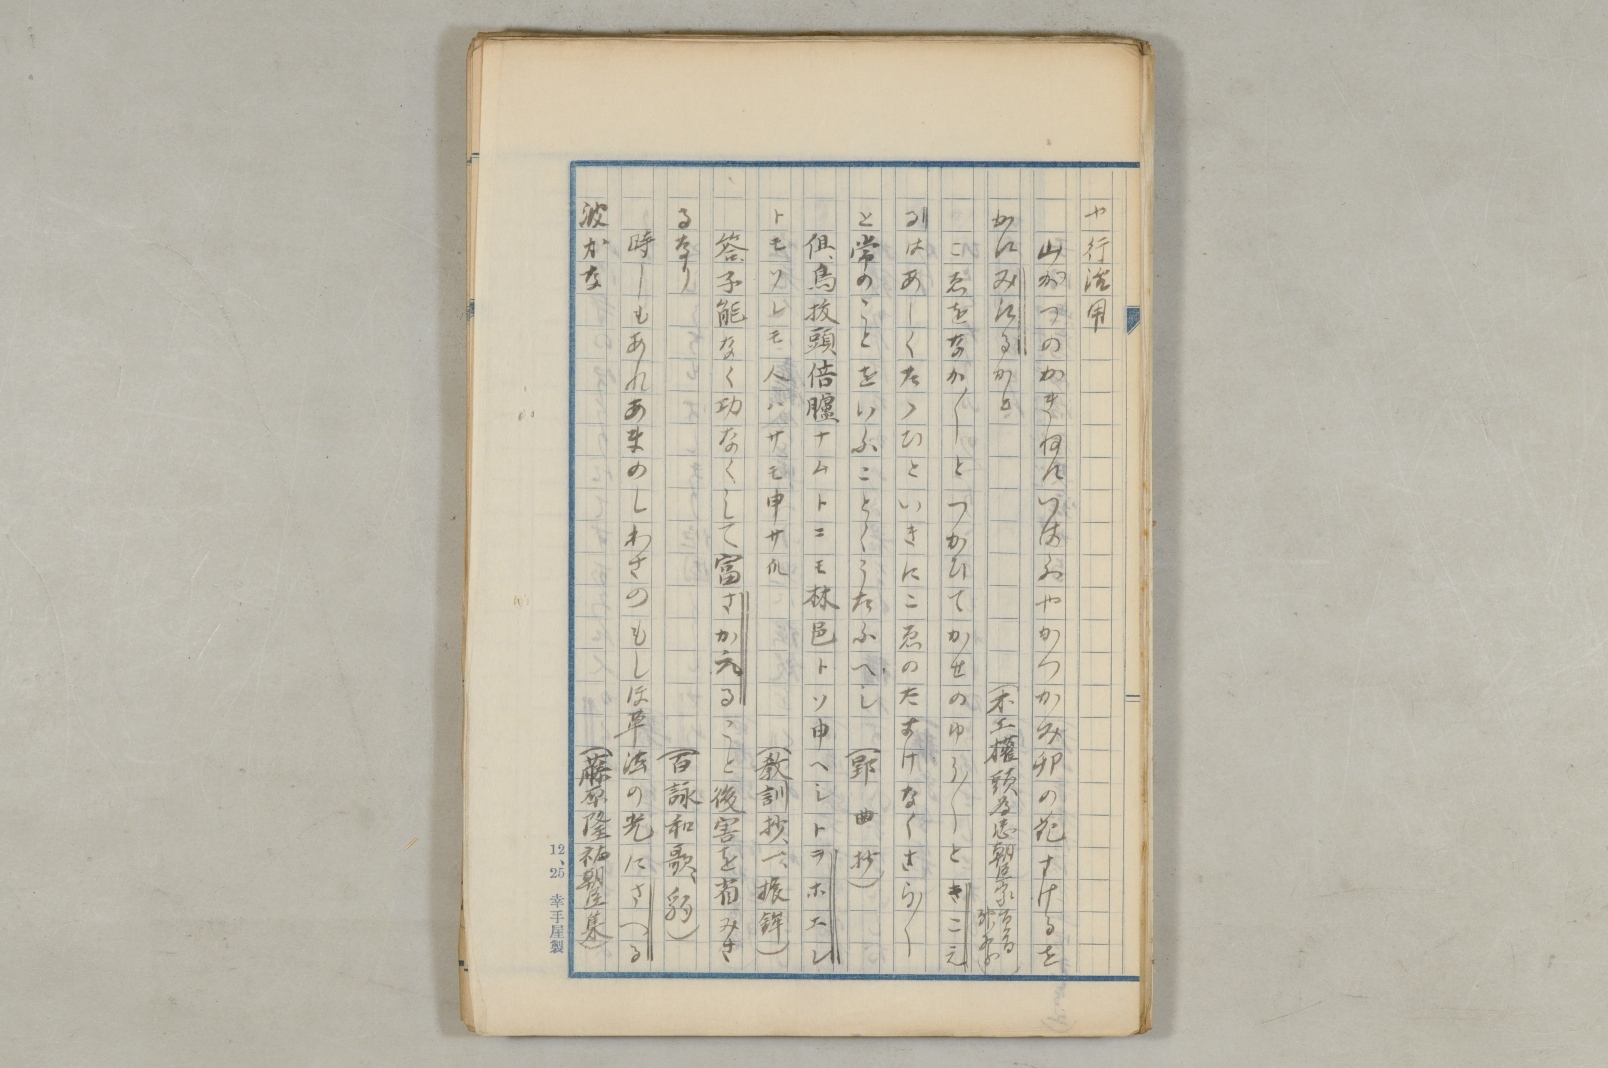 や行活用
山がつのかきほにいはふやかつかみ卯の花さけるを
かにみにるかも
(木工權頭為忠朝臣家百首
こゑをなか〳〵とつかひてかせのゆら〳〵ときこえ
るはあしくたゝひといきにこゑのたすけなくさら〳〵
と常のことをいふことくうたふへし (郢曲抄)
倶、鳥拔頭倍臚ナムトニモ林邑トソ申ヘシトヲホエシ
トモソレモ人ハサモ申サス (教訓抄、一、振鉾)
答、子能なく功なくして富さかえること後害を省みさ
るなり (百詠和歌、
時しもあれあまのしわさのもしほ草法の光にさへる
波かな (藤原隆祐朝臣集)
12、25 幸手屋製